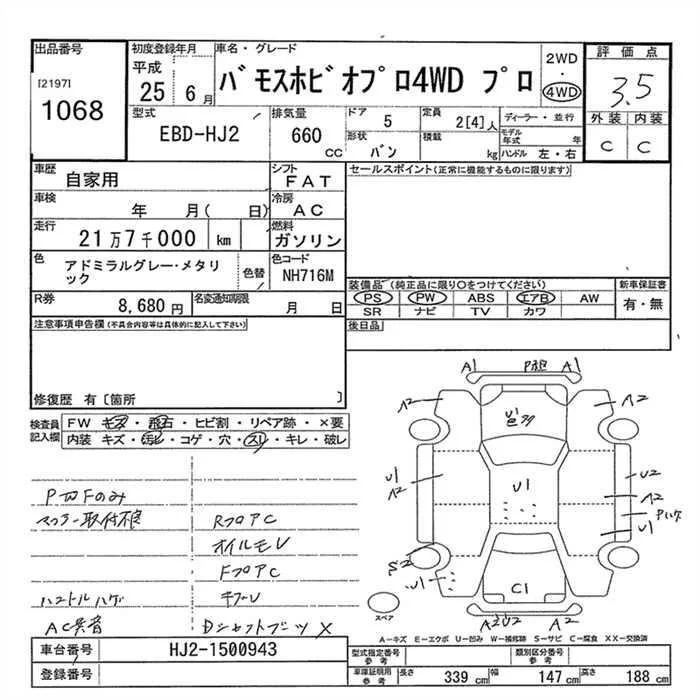 出品番号
[2197]
1068
初度登録年月
平成
25年 6月
車名・グレード
バモスホビオプロ4WD プロ
2WD
・
4WD
評価点
3.5
外装 内装
C C
型式
EBD-HJ2
排気量
660 CC
ドア 5
形状 バン
定員 2[4]人
積載 kg
ディーラー・並行
モデル年式 年
ハンドル 左・右
車歴 自家用
シフト FAT
車検 年 月( 日)
冷房 AC
走行 21万7千000 km
燃料 ガソリン
色 アドミラルグレー・メタリック
色替
色コード NH716M
R券 8,680円
名変通知期限 月 日
セールスポイント(正常に機能するものに限ります)
装備品 (純正品に限り○をつけてください)
PS PW ABS エアB AW
SR ナビ TV カワ
新車保証書
有・無
後日品
注意事項申告欄(不具合内容等は具体的に記入して下さい)
修復歴 有〔箇所 〕
検査員記入欄
FW キズ・飛石・ヒビ割・リペア跡・×要
内装 キズ・汚レ・コゲ・穴・スレ・キレ・破レ
マフラー取付不良
RフロアC
オイルモレ
FフロアC
ハンドルハゲ
AC異音
Dシャフトブーツ X
A1 A1
A2 A2
U1
U1
A2
U1
U2
A2
Pハゲ
U1
S2
U1
C1
A2U2 A2
スペア
A-キズ E-エクボ U-凹み W-補修跡 S-サビ C-腐食 XX-交換済
車台番号 HJ2-1500943
登録番号
型式指定番号 参考
類別区分番号 参考
車庫証明用 参考 長さ 339cm 幅 147cm 高さ 188cm